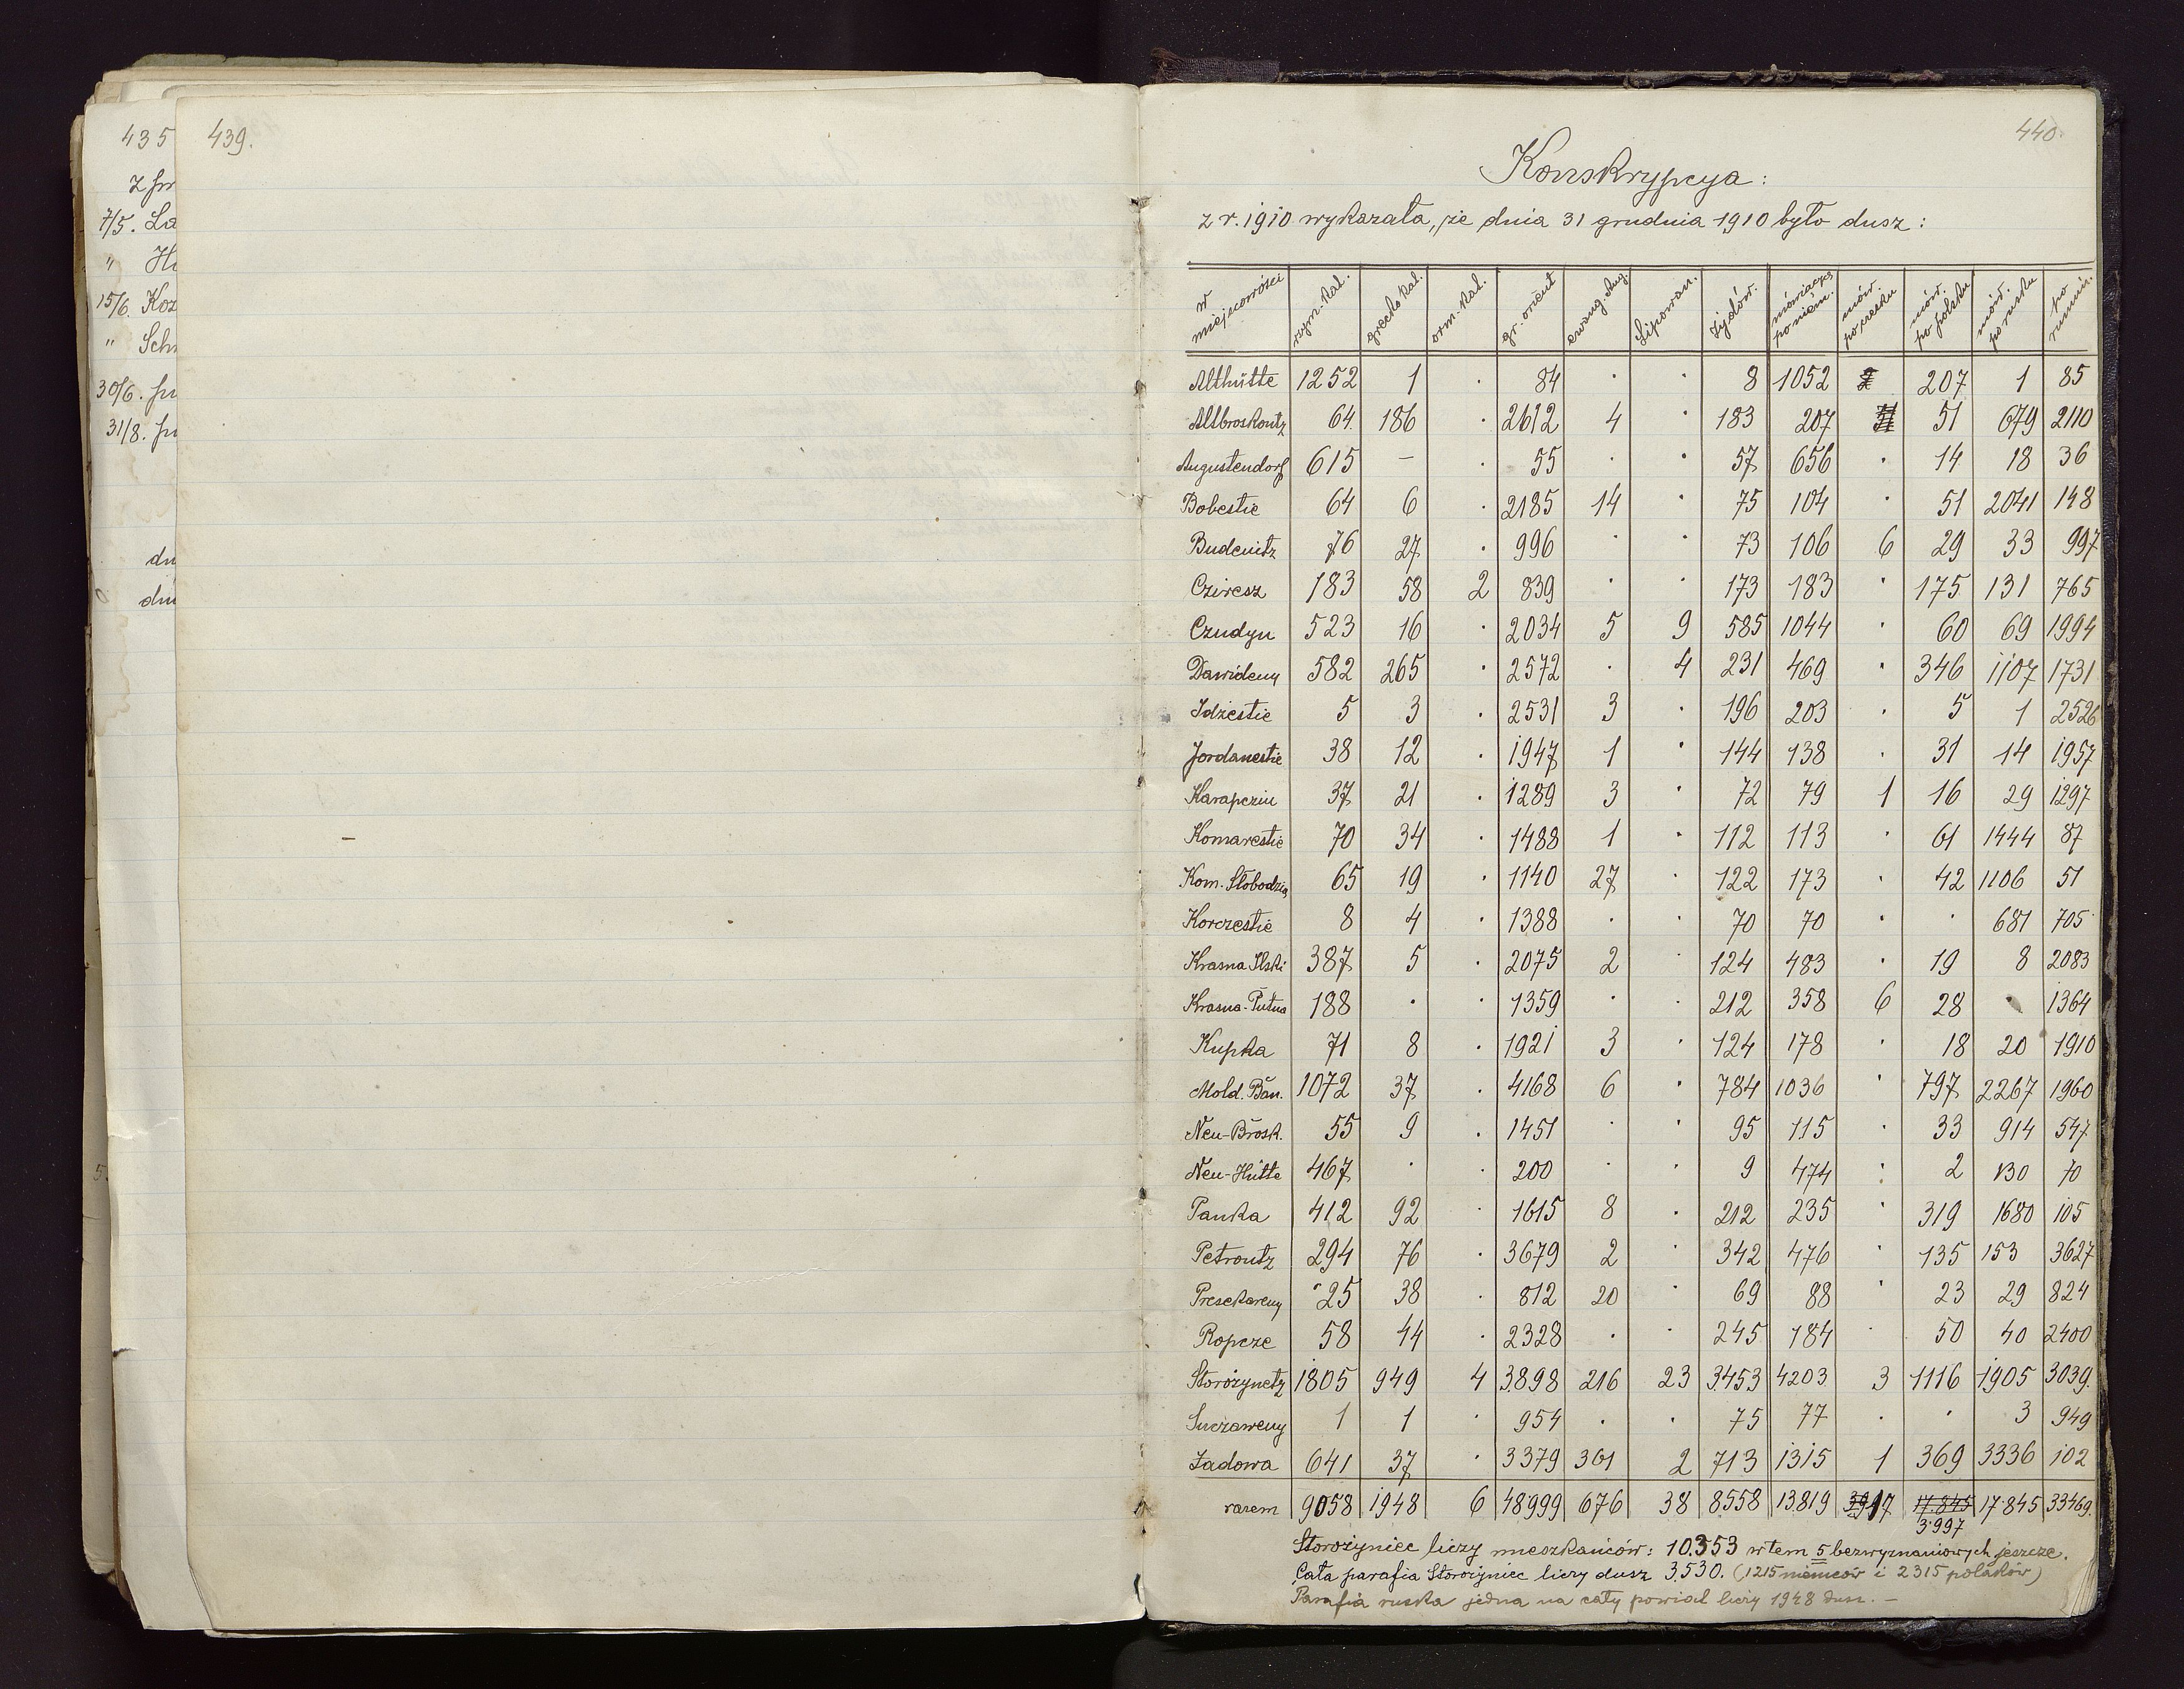 435
Z
7/5. La
" Hu
15/6. Koz
" Sch
30/6.
31/8.
du
du
439.
440.
Konskrypcya:
z r. 1910 wykazała, że dnia 31 grudnia 1910 było dusz:
w miejscowości rzym.-kat. grecko kat. orm.-kat. gr. orient ewang. Aug. Lipowan. Żydów. mówiących po niem. mów. po czesku mów. po polsku mów. po rusku po rumuń.
Althütte 1252 1 . 84 . . 8 1052 207 1 85
Altbroskoutz 64 186 . 2612 4 . 183 207 51 679 2110
Augustendorf 615 – . 55 . . 57 656 . 14 18 36
Bobestie 64 6 . 2185 14 . 75 104 . 51 2041 148
Budenitz 76 27 . 996 . . 73 106 6 29 33 997
Czires​z 183 58 2 839 . . 173 183 . 175 131 765
Czudyn 523 16 . 2034 5 9 585 1044 . 60 69 1994
Dawideny 582 265 . 2572 . 4 231 469 . 346 1107 1731
Idzestie 5 3 . 2531 3 . 196 203 . 5 1 2526
Jordanestie 38 12 . 1947 1 . 144 138 . 31 14 1957
Karapcziu 37 21 . 1289 3 . 72 79 1 16 29 1297
Komarestie 70 34 . 1488 1 . 112 113 . 61 1444 87
Kom. Słobodzia 65 19 . 1140 27 . 122 173 . 42 1106 51
Korczestie 8 4 . 1388 . . 70 70 . . 681 705
Krasna Ilski 387 5 . 2075 2 . 124 483 . 19 8 2083
Krasna-Putna 188 . . 1359 . . 212 358 6 28 . 1364
Kupka 71 8 . 1921 3 . 124 178 . 18 20 1910
Mold. Ban. 1072 37 . 4168 6 . 784 1036 . 797 2267 1960
Neu-Brosk. 55 9 . 1451 . . 95 115 . 33 914 547
Neu-Hütte 467 . . 200 . . 9 474 . 2 130 70
Panka 412 92 . 1615 8 . 212 235 . 319 1680 105
Petroutz 294 76 . 3679 2 . 342 476 . 135 153 3627
Presekareny 25 38 . 812 20 . 69 88 . 23 29 824
Ropcze 58 44 . 2328 . . 245 184 . 50 40 2400
Storożynetz 1805 949 4 3.898 216 23 3453 4203 3 1116 1905 3039.
Suczaweny 1 1 . 954 . . 75 77 . . 3 949
Żadowa 641 37 . 3379 361 2 713 1315 1 369 3336 102
razem 9058 1948 6 48.999 676 38 8558 13.819 17 17.845 17.845 33469.
3.997
Storożyniec liczy mieszkańców: 10.353 w tem 5 bezwyznaniowych jeszcze.
Cała parafia Storożyniec liczy dusz 3.530. (1215 niemców i 2315 polaków)
Parafia ruska jedna na cały powiat liczy 1948 dusz. –